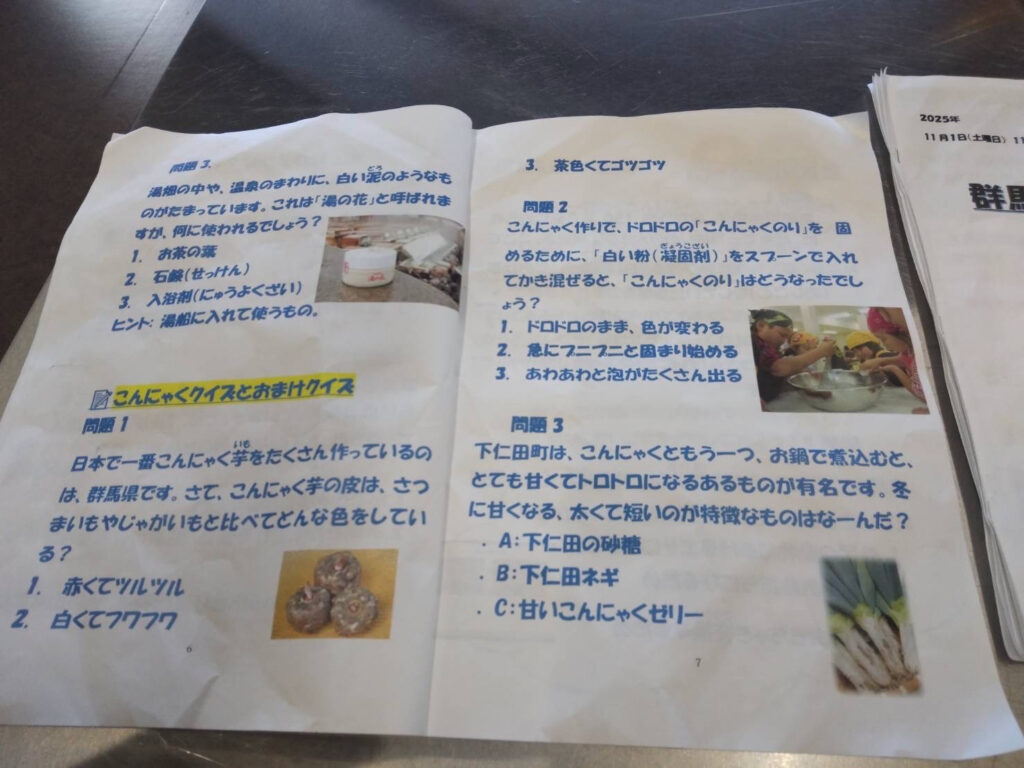 問題 3.
湯畑の中や、温泉のまわりに、白い泥のようなも
どろ
のがたまっています。これは「湯の花」と呼ばれま
すが、何に使われるでしょう？
1. お茶の葉
2. 石鹸(せっけん)
3. 入浴剤(にゅうよくざい)
ヒント: 湯船に入れて使うもの。
こんにゃくクイズとおまけクイズ
問題 1
日本で一番こんにゃく芋をたくさん作っているの
いも
は、群馬県です。さて、こんにゃく芋の皮は、さつ
まいもやじゃがいもと比べてどんな色をしてい
る？
1. 赤くてツルツル
2. 白くてフワフワ
6
3. 茶色くてゴツゴツ
問題 2
こんにゃく作りで、ドロドロの「こんにゃくのり」を 固
めるために、「白い粉(凝固剤)」をスプーンで入れ
ぎょうこざい
てかき混ぜると、「こんにゃくのり」はどうなったでし
ょう？
1. ドロドロのまま、色が変わる
2. 急にプニプニと固まり始める
3. あわあわと泡がたくさん出る
問題 3
下仁田町は、こんにゃくともう一つ、お鍋で煮込むと、
とても甘くてトロトロになるあるものが有名です。冬
に甘くなる、太くて短いのが特徴なものはなーんだ？
・ A:下仁田の砂糖
・ B:下仁田ネギ
・ C:甘いこんにゃくゼリー
7
2025年
11月1日(土曜日)
群馬